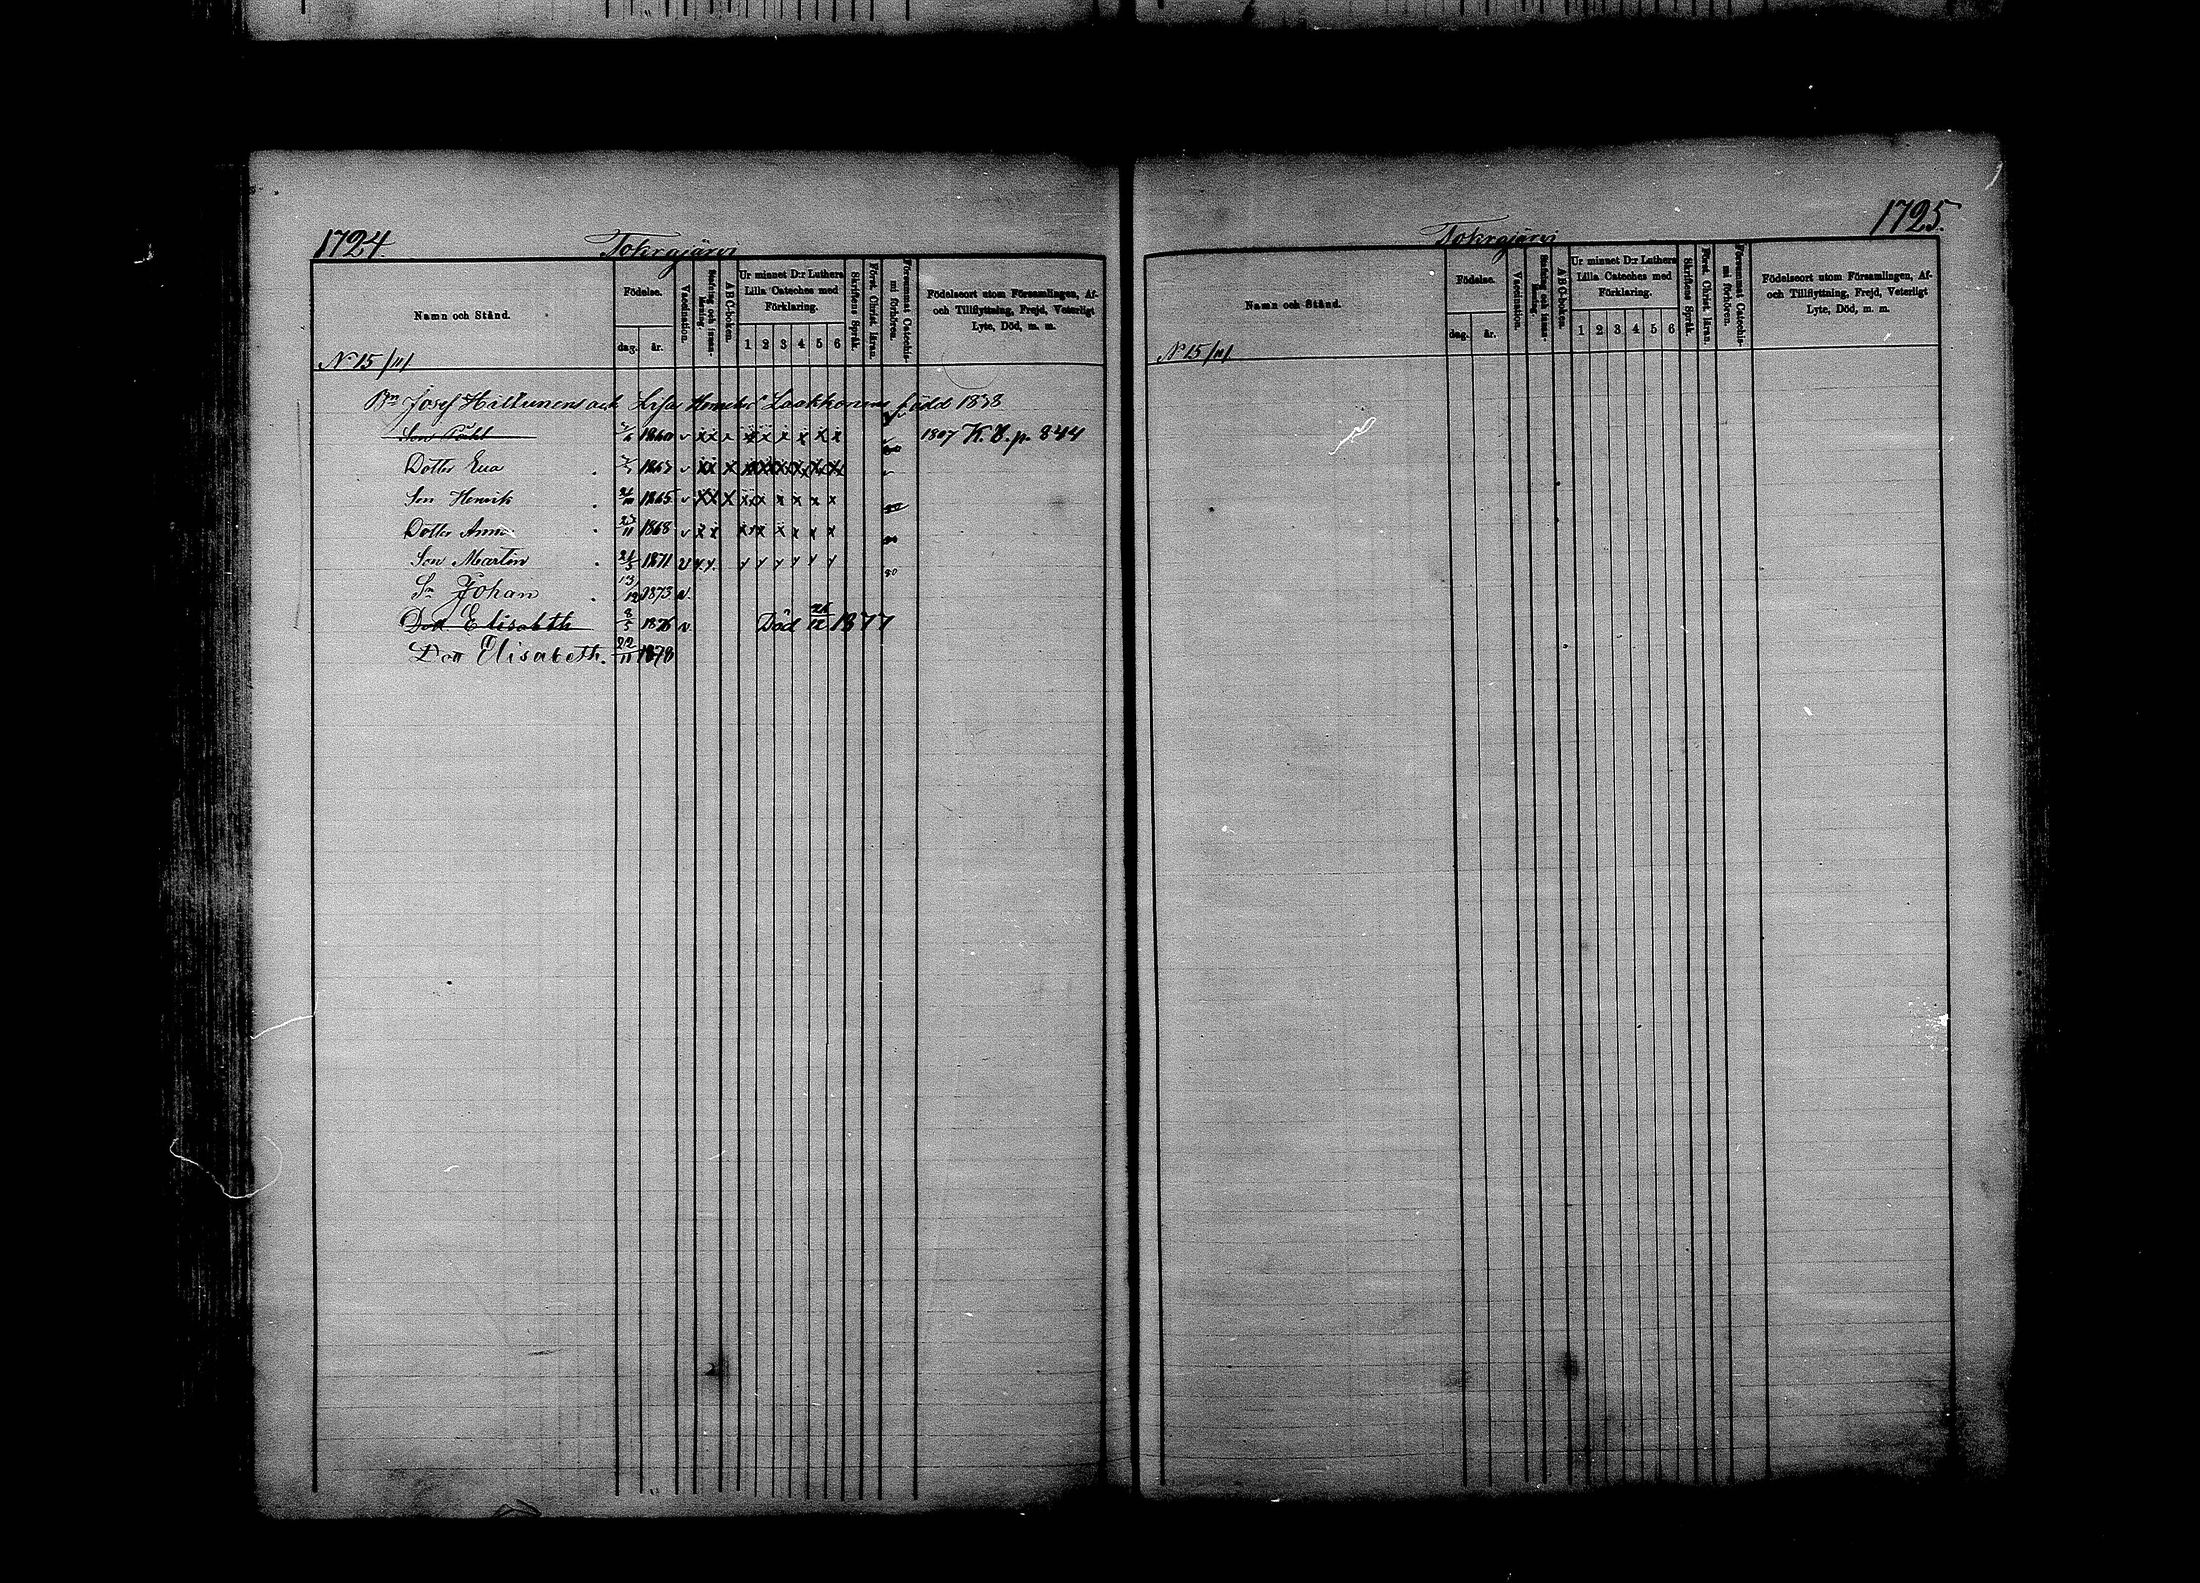 1724.
Tokrajärvi
Namn och Stånd.
Födelse.
dag. år.
Vaccination.
Stafning och innanläsning.
ABC-boken.
Ur minnet D:r Luthers Lilla Cateches med Förklaring.
1 2 3 4 5 6
Skriftens Språk.
Först. Christ. läran.
Försummat Catechismi förhören.
Födelseort utom Församlingen, Af-
och Tillflyttning, Frejd, Veterligt
Lyte, Död, m. m.
N 15 /11/
Bn Josef Hiltunens och Lisa Laakkonens född 1838
Son Påhl 1860 v x x x x x x x x 1807 K. B. p. 844
Dotter Eva 1863 v x x x x x x x x x
Son Henrik 1865 v x x x x x x x x x
Dotter Anna 23/11 1868 v x x x x x x x x
Son Martin 1871 v
Sn Johan 13/12 1873 v
Dott Elisabeth 8/5 1876 v Död 1877
Dott Elisabeth. 22/11 1878
1725.
Tokrajärvi
Namn och Stånd.
Födelse.
dag. år.
Vaccination.
Stafning och innanläsning.
ABC-boken.
Ur minnet D:r Luthers
Lilla Cateches med
Förklaring.
1 2 3 4 5 6
Skriftens Språk.
Först. Christ. läran.
Försummat Catechismi förhören.
Födelseort utom Församlingen, Af-
och Tillflyttning, Frejd, Veterligt
Lyte, Död, m. m.
N 15 /11/